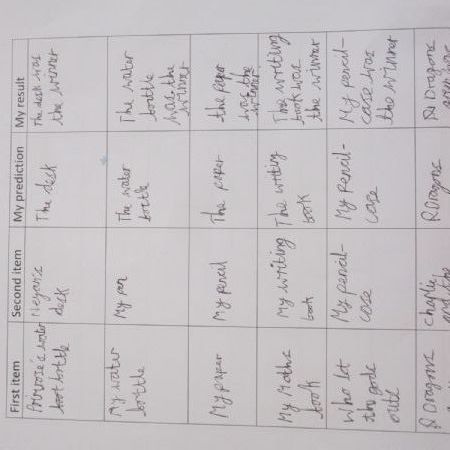 First item
Second item
My prediction
My result
water
bottle
desk
The desk
The desk was
the winner
My water
bottle
My pen
The water
bottle
The water
bottle
was the
winner
My paper
My pencil
The paper
the paper
was the
winner
My Maths
book
My writing
book
The writing
book
The writting
book was
the winner
Who let
the gods
My pencil-
case
My pencil-
case
My pencil-
case was
the winner
Dragons
charlie
and the
R Dragons
Dragons